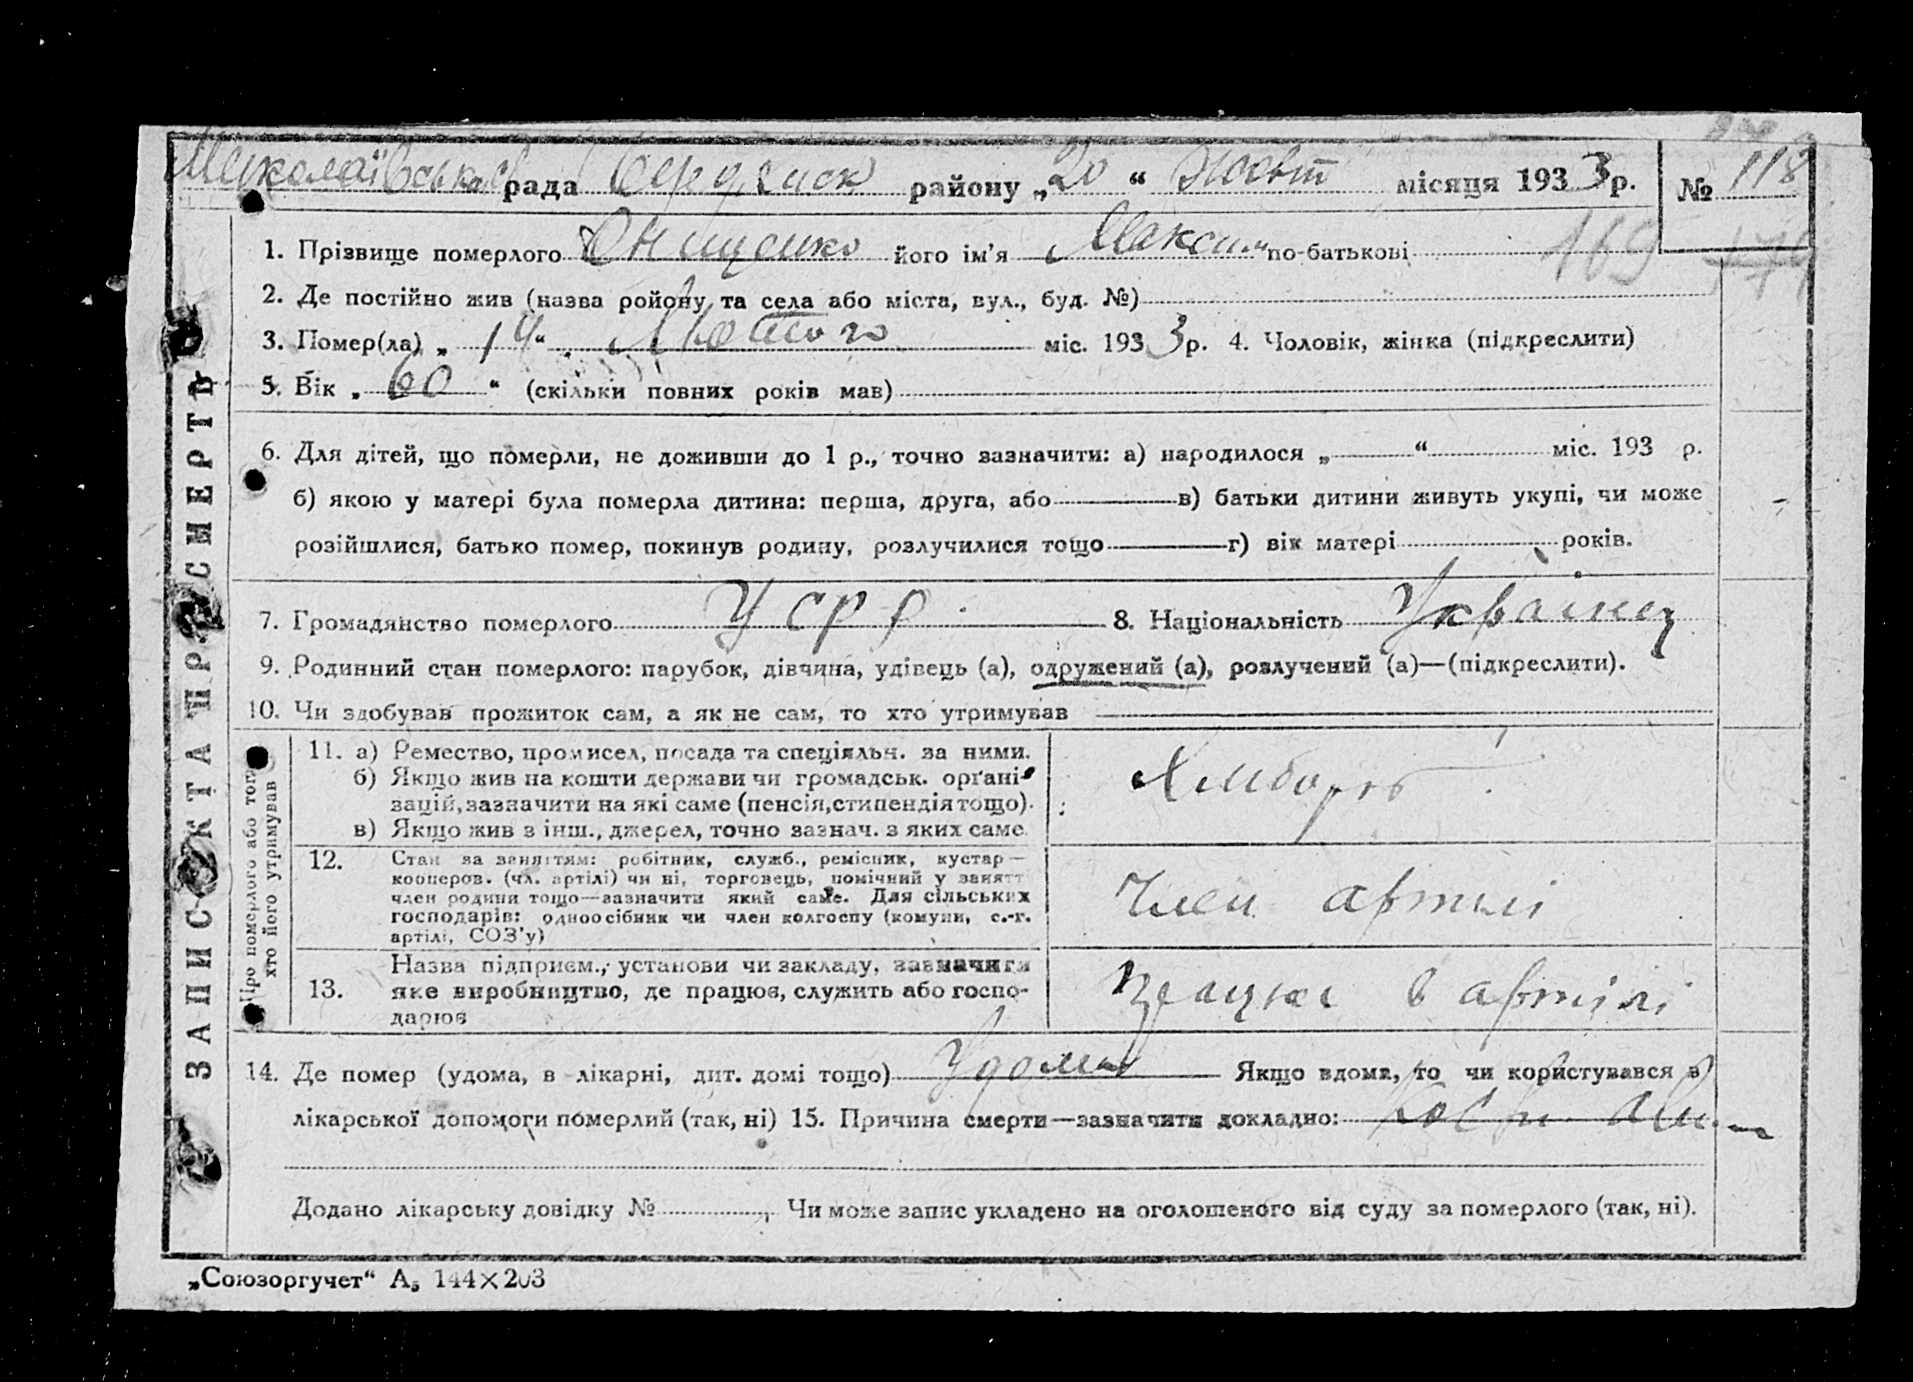 Миколаївська рада Бердянськ району „20“ Жовт місяця 1933 р. № 118
169
1. Прізвище померлого Онищенко його ім'я Максим по-батькові
2. Де постійно жив (назва ройону та села або міста, вул., буд. №)
3. Помер(ла) „14“ Лютого міс. 1933 р. 4. Чоловік, жінка (підкреслити)
5. Вік „60“ (скільки повних років мав)
6. Для дітей, що померли, не доживши до 1 р., точно зазначити: а) народилося „ “ міс. 193 р.
б) якою у матері була померла дитина: перша, друга, або в) батьки дитини живуть укупі, чи може
розійшлися, батько помер, покинув родину, розлучилися тощо г) вік матері років.
7. Громадянство померлого УСРР 8. Національність Українец
9. Родинний стан померлого: парубок, дівчина, удівець (а), одружений (а), розлучений (а)—(підкреслити).
10. Чи здобував прожиток сам, а як не сам, то хто утримував
Про померлого або того
хто його утримував
11. а) Ремество, промисел, посада та спеціяльн. за ними.
б) Якщо жив на кошти держави чи громадськ. орґані-
зацій, зазначити на які саме (пенсія, стипендія тощо).
в) Якщо жив з інш., джерел, точно зазнач. з яких саме
Хлібороб
12. Стан за заняттям: робітник, служб., ремісник, кустар—
кооперов. (чл. артілі) чи ні, торговець, помічний у занятт
член родини тощо—зазначити який саме. Для сільських
господарів: одноосібник чи член колгоспу (комуни, с.-г.
артілі, СОЗ'у)
Член артилі
13. Назва підприєм., установи чи закладу, зазначити
яке виробництво, де працює, служить або госпо-
дарює
в артілі
14. Де помер (удома, в лікарні, дит. домі тощо) Удома Якщо вдома, то чи користувався з
лікарської допомоги померлий (так, ні) 15. Причина смерти—зазначити докладно:
Додано лікарську довідку № , Чи може запис укладено на оголошеного від суду за померлого (так, ні).
ЗАПИСКА ПРО СМЕРТЬ
„Союзоргучет“ А₅ 144×203